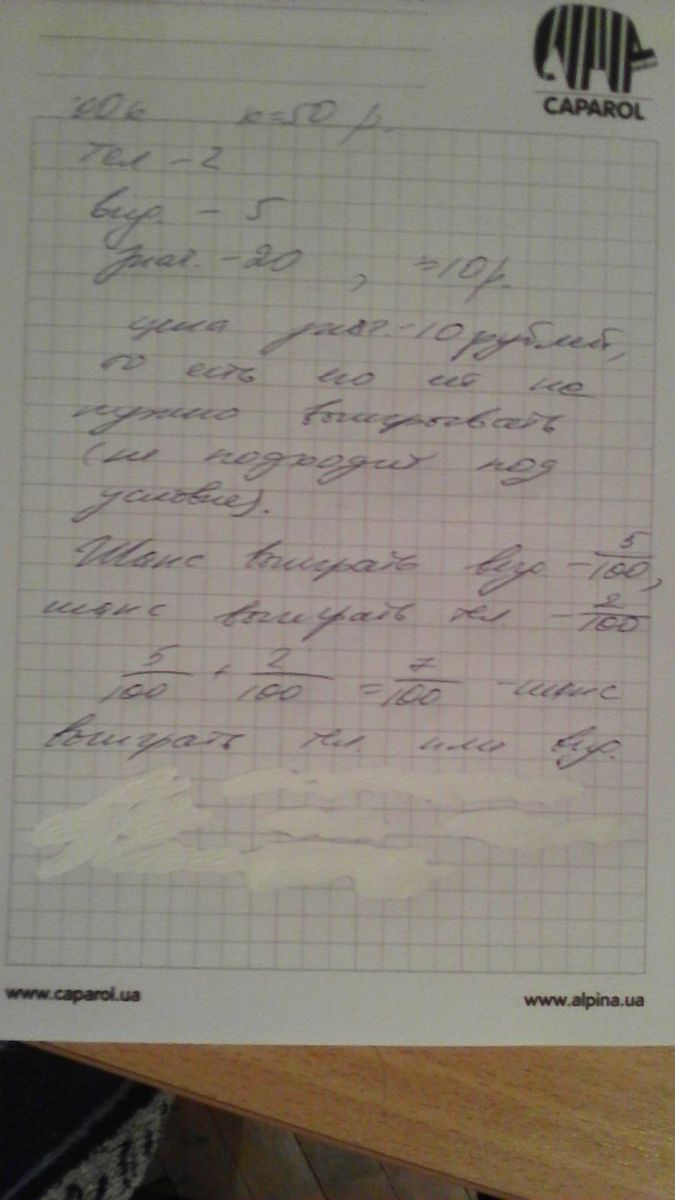 CAPAROL
=50 р.
тел - 2
вид. - 5
- 20 , =10 р.
цена - 10 рублей,
то есть но их не
нужно выигрывать
(не подходит под
условие).
Шанс выиграть вид. - 5/100,
шанс выиграть тел - 2/100
5/100 + 2/100 = 7/100 - шанс
выиграть тел или вид.
www.caparol.ua
www.alpina.ua